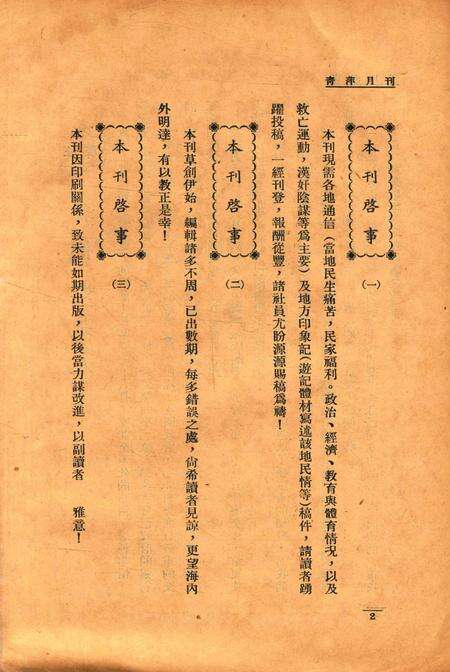 青萍月刊
本刊啓事
(一)
本刊現需各地通信(當地民生痛苦，民家福利。政治、經濟、教育與體育情况，以及
救亡運動，漢奸陰謀等爲主要)及地方印象記(遊記體材寫述該地民情等)稿件，請讀者踴
躍投稿，一經刊登，報酬從豐，諸社員尤盼源源賜稿爲禱！
本刊啓事
(二)
本刊草創伊始，編輯諸多不周，已出數期，每多錯誤之處，尙希讀者見諒，更望海內
外明達，有以教正是幸！
本刊啓事
(三)
本刊因印刷關係，致未能如期出版，以後當力謀改進，以副讀者　雅意！
2